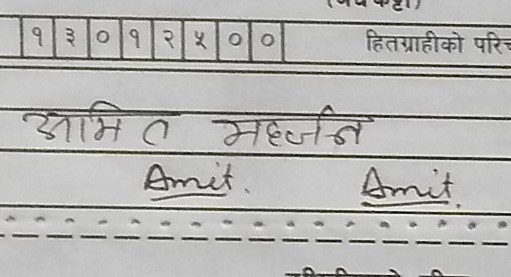 १३०१२५००
हितग्राहीको
आमित महर्जन
Amit. Amit.